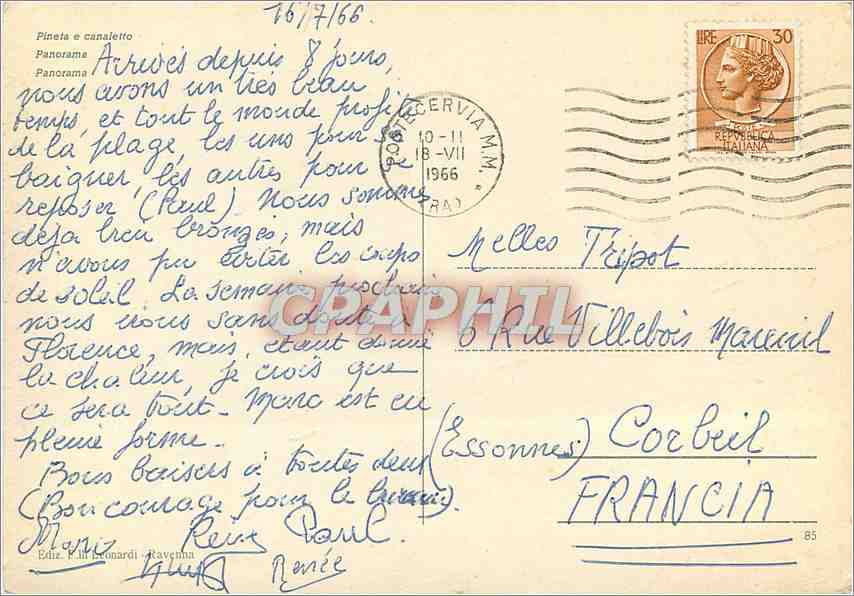 16/7/66.
Pineta e canaletto
Panorama
Panorama
Arrivés depuis 8 jours,
nous avons un très beau
temps, et tout le monde profite
de la plage, les uns pour se
baigner, les autres pour se
reposer (Paul). Nous sommes
déja bien bronzés, mais
n'avons pu éviter les coups
de soleil. La semaine prochaine
nous irons sans doute à
Florence, mais, étant donné
la chaleur, je crois que
ce sera tout. Marc est en
pleine forme.
Bons baisers à toutes deux
(Bon courage pour le).
Paul
Renée
Ediz. F.lli Leonardi - Ravenna
POSTE CERVIA M.M.
10-11
18-VII
1966
(RA)
LIRE 30
REPVBBLICA
ITALIANA
Melles Tripot
6 Rue Villebois Mareuil
(Essonnes) Corbeil
FRANCIA
85
CRAPHIL